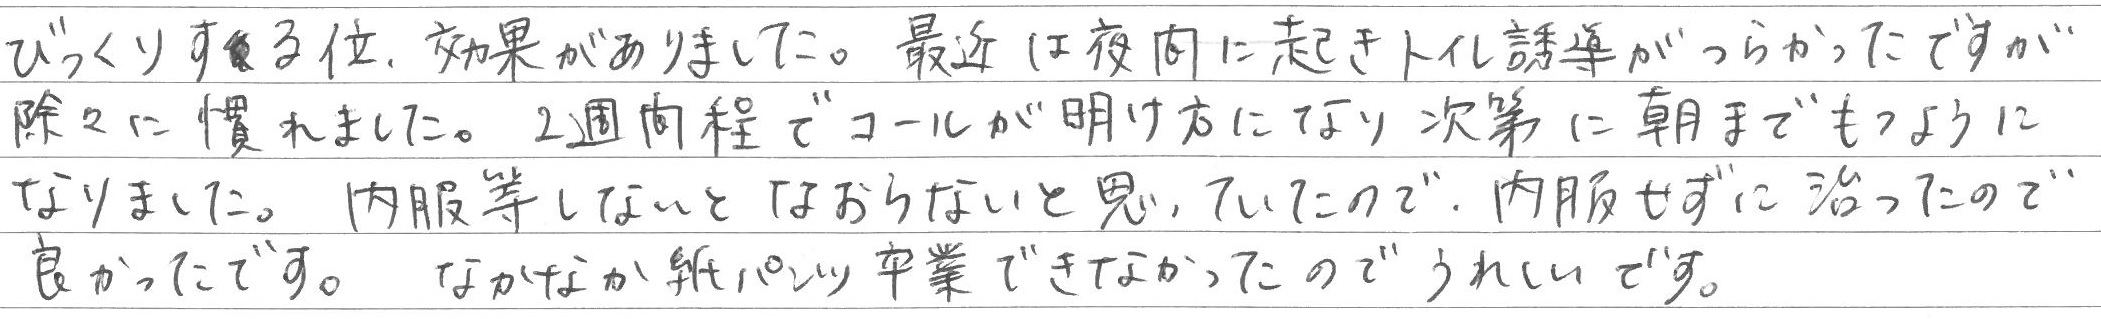 びっくりする位、効果がありました。最近は夜間に起きトイレ誘導がつらかったですが
除々に慣れました。2週間程でコールが明け方になり次第に朝までもつように
なりました。内服等しないとなおらないと思っていたので、内服せずに治ったので
良かったです。 なかなか紙パンツ卒業できなかったのでうれしいです。